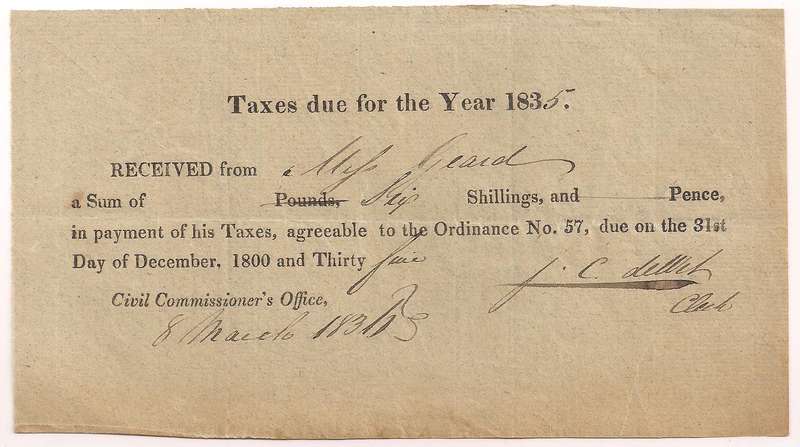 Taxes due for the Year 1835.
RECEIVED from Miss Geard
a Sum of Pounds, Six Shillings, and Pence,
in payment of his Taxes, agreeable to the Ordinance No. 57, due on the 31st
Day of December, 1800 and Thirty five
J. C. deWet
Civil Commissioner's Office,
Clerk
8 March 183